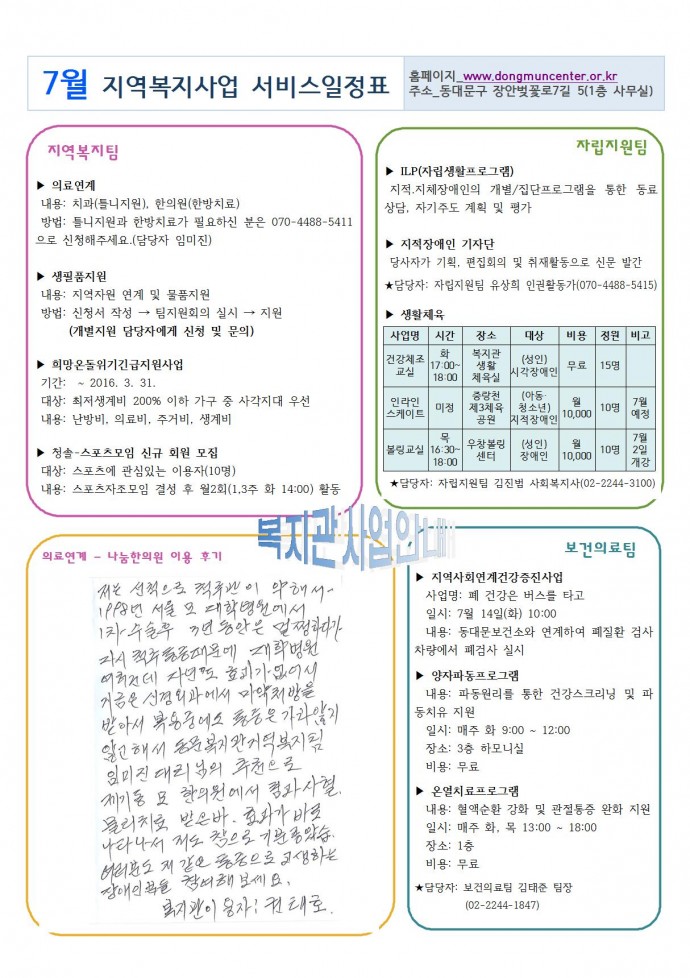 7월 지역복지사업 서비스일정표
홈페이지_www.dongmuncenter.or.kr
주소_동대문구 장안벚꽃로7길 5(1층 사무실)
지역복지팀
▶ 의료연계
내용: 치과(틀니지원), 한의원(한방치료)
방법: 틀니지원과 한방치료가 필요하신 분은 070-4488-5411
으로 신청해주세요.(담당자 임미진)
▶ 생필품지원
내용: 지역자원 연계 및 물품지원
방법: 신청서 작성 → 팀지원회의 실시 → 지원
(개별지원 담당자에게 신청 및 문의)
▶ 희망온돌위기긴급지원사업
기간: ~ 2016. 3. 31.
대상: 최저생계비 200% 이하 가구 중 사각지대 우선
내용: 난방비, 의료비, 주거비, 생계비
▶ 청솔-스포츠모임 신규 회원 모집
대상: 스포츠에 관심있는 이용자(10명)
내용: 스포츠자조모임 결성 후 월2회(1,3주 화 14:00) 활동
자립지원팀
▶ ILP(자립생활프로그램)
지적.지체장애인의 개별/집단프로그램을 통한 동료
상담, 자기주도 계획 및 평가
▶ 지적장애인 기자단
당사자가 기획, 편집회의 및 취재활동으로 신문 발간
★담당자: 자립지원팀 유상희 인권활동가(070-4488-5415)
▶ 생활체육
사업명 시간 장소 대상 비용 정원 비고
건강체조 교실 화 17:00~ 18:00 복지관 생활 체육실 (성인) 시각장애인 무료 15명
인라인 스케이트 미정 중랑천 제3체육 공원 (아동· 청소년) 지적장애인 월 10,000 10명 7월 예정
볼링교실 목 16:30~ 18:00 우창볼링 센터 (성인) 장애인 월 10,000 10명 7월 2일 개강
★담당자: 자립지원팀 김진범 사회복지사(02-2244-3100)
복지관 사업안내
의료연계 – 나눔한의원 이용 후기
저는 선척으로 척추관이 약해서.
1998년 서울 모 대학병원에서
1차 수술후 3년 동안은 괜찮하다가
다시 척추통증때문에 대학병원
지금은 신경외과에서 마약처방을
받아서 복용중에도 통증은 가라않지
않고해서 동문복지관지역복지팀
임미진 대리님의 추천으로
제기동 모 한의원에서 침과사혈.
물리치료 받은바. 효과가 바로
나타나서 저도 참으로 기분좋았슴.
여러분도 저 같은 통증으로 고생하는
장애인분들 참여해 보세요.
복지관이용자: 권태호.
보건의료팀
▶ 지역사회연계건강증진사업
사업명: 폐 건강은 버스를 타고
일시: 7월 14일(화) 10:00
내용: 동대문보건소와 연계하여 폐질환 검사
차량에서 폐검사 실시
▶ 양자파동프로그램
내용: 파동원리를 통한 건강스크리닝 및 파
동치유 지원
일시: 매주 화 9:00 ~ 12:00
장소: 3층 하모니실
비용: 무료
▶ 온열치료프로그램
내용: 혈액순환 강화 및 관절통증 완화 지원
일시: 매주 화, 목 13:00 ~ 18:00
장소: 1층
비용: 무료
★담당자: 보건의료팀 김태준 팀장
(02-2244-1847)